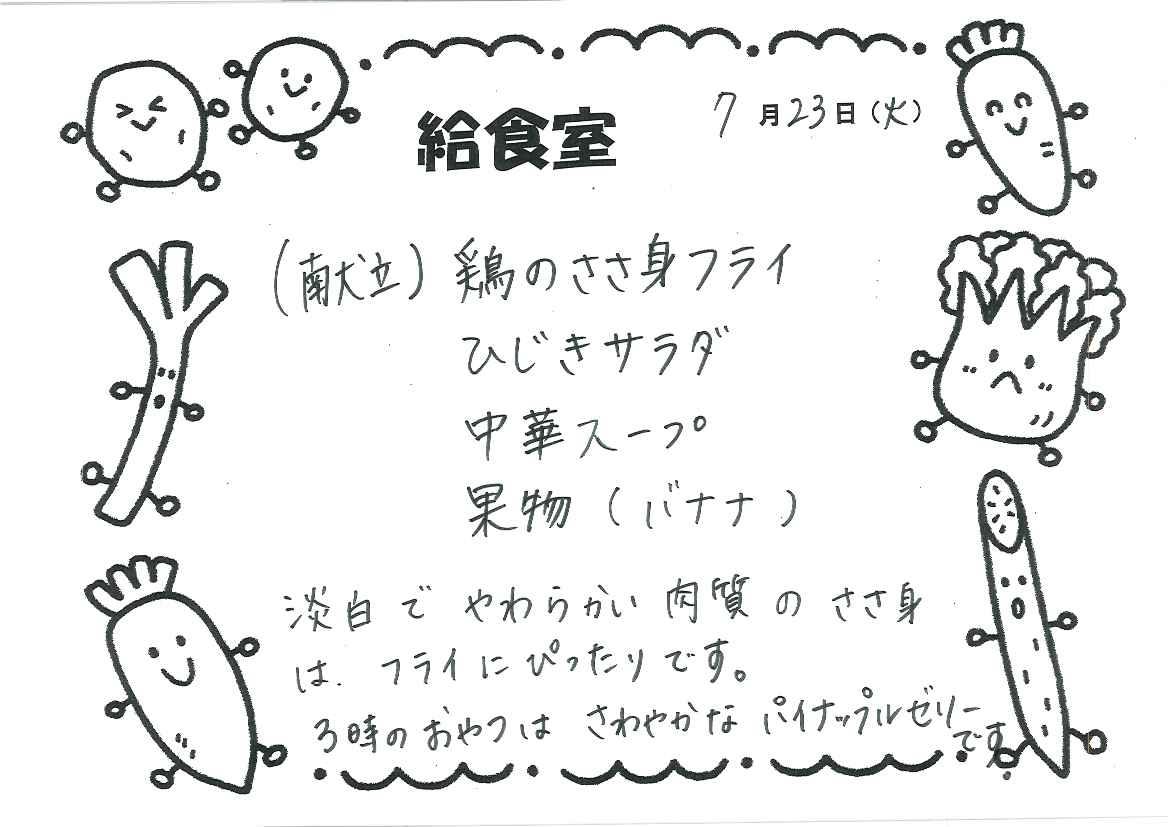 給食室
7月23日(火)
(献立)鶏のささ身フライ
ひじきサラダ
中華スープ
果物(バナナ)
淡白で やわらかい 肉質の ささ身
は、フライにぴったりです。
3時のおやつは さわやかな パイナップルゼリー
です。